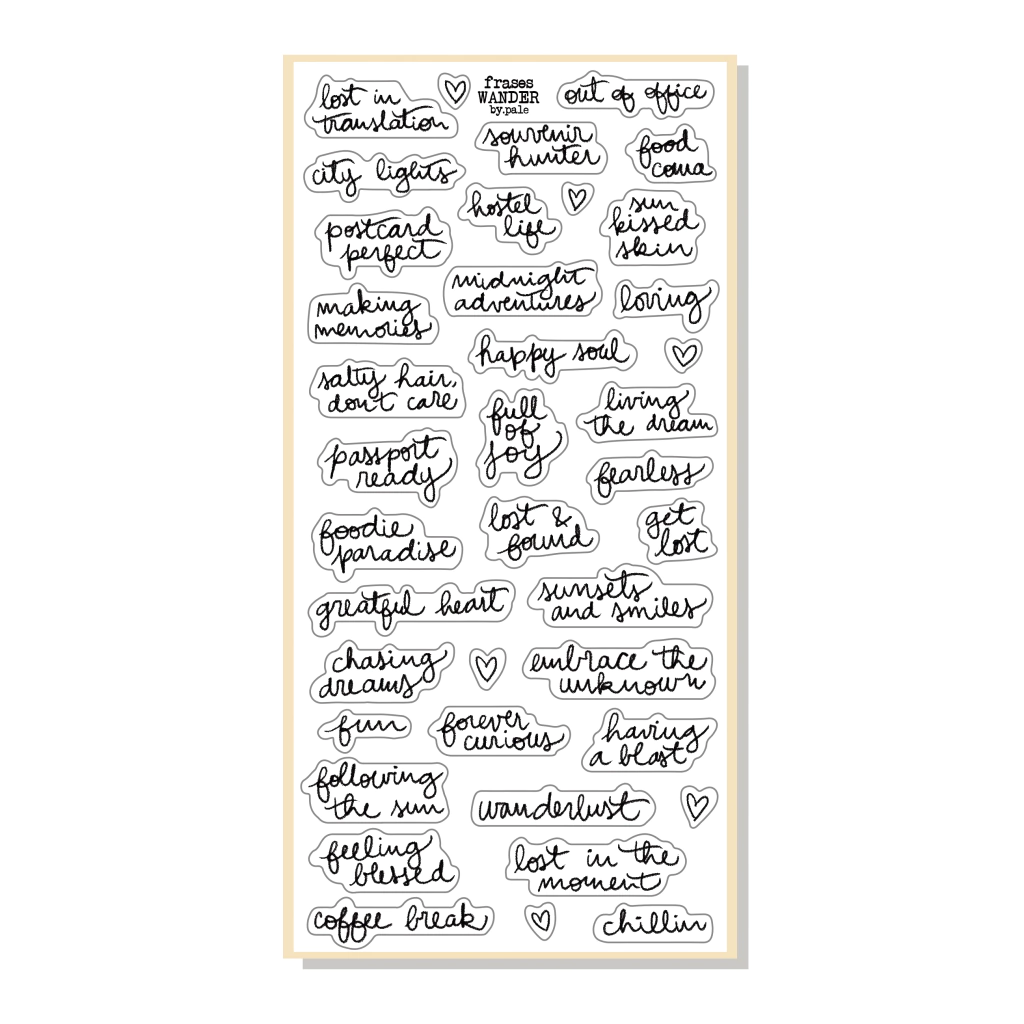 lost in
translation
frases
WANDER
by.pale
out of office
souvenir
hunter
food
coma
city lights
hostel
life
sun
kissed
skin
postcard
perfect
midnight
adventures
loving
making
memories
happy soul
salty hair,
don't care
full
of
joy
living
the dream
passport
ready
fearless
foodie
paradise
lost &
found
get
lost
greatful heart
sunsets
and smiles
chasing
dreams
embrace the
unknown
fun
forever
curious
having
a blast
following
the sun
wanderlust
feeling
blessed
lost in the
moment
coffee break
chillin